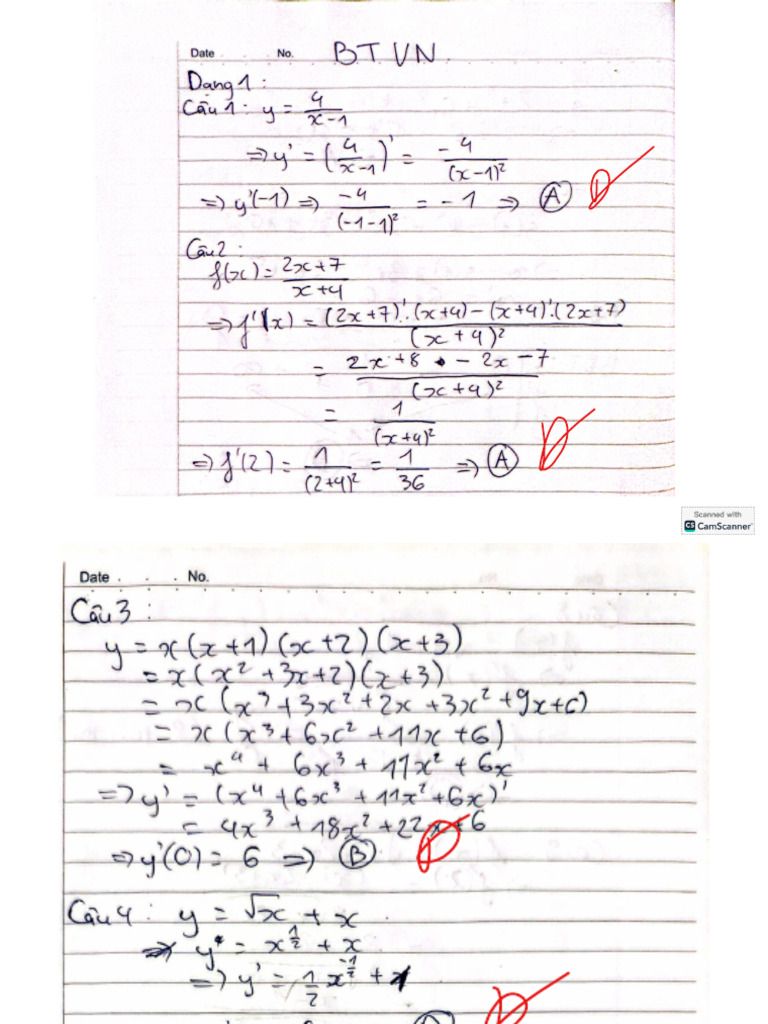 Date . . . No. BTVN
Dạng 1 :
Câu 1 : y = 4/(x-1)
=> y' = (4/(x-1))' = -4/(x-1)²
=> y'(-1) => -4/(-1-1)² = -1 => A
Câu 2 :
f(x) = (2x+7)/(x+4)
=> f'(x) = ((2x+7)'.(x+4) - (x+4)'.(2x+7))/(x+4)²
= (2x+8 - 2x-7)/(x+4)²
= 1/(x+4)²
=> f'(2) = 1/(2+4)² = 1/36 => A
Scanned with
CS CamScanner
Date . . . No.
Câu 3 :
y = x(x+1)(x+2)(x+3)
= x(x²+3x+2)(x+3)
= x(x³+3x²+2x+3x²+9x+6)
= x(x³+6x²+11x+6)
= x⁴ + 6x³ + 11x² + 6x
=> y' = (x⁴+6x³+11x²+6x)'
= 4x³+18x²+22x+6
=> y'(0) = 6 => B
Câu 4 : y = √x + x
=> y = x^(1/2) + x
=> y' = 1/2 x^(-1/2) + 1